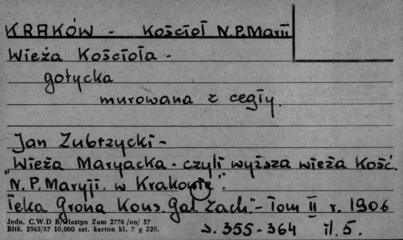 KRAKÓW - Kościoł N.P. Marii
Wieża Kościoła -
gotycka
murowana z cegły.
Jan Zubrzycki -
"Wieża Maryacka - czyli wyższa wieża Kość.
N.P. Maryji w Krakowie".
Teka Grona Kons. Gal. Zach. - Tom II r. 1906
s. 355-364 il. 5.
Jedn. C.W.D Olsztyn Zam 2776 /on/ 57
Bltk. 2563/57 10.000 szt. karton kl. 7 g 220.